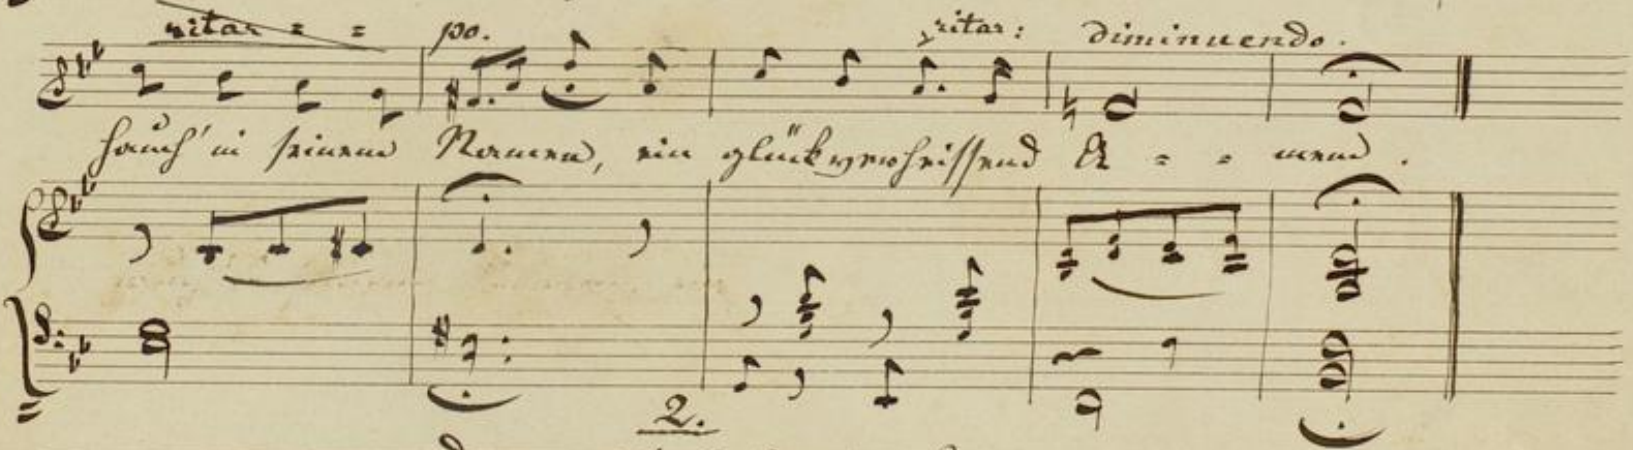 ritar = = po. ritar: diminuendo.
hauch' in seinem Namen, ein glückverheissend A = = men.
2.